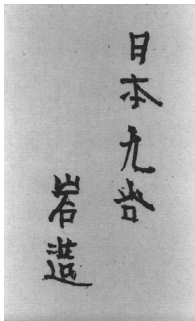 日本九谷
岩造